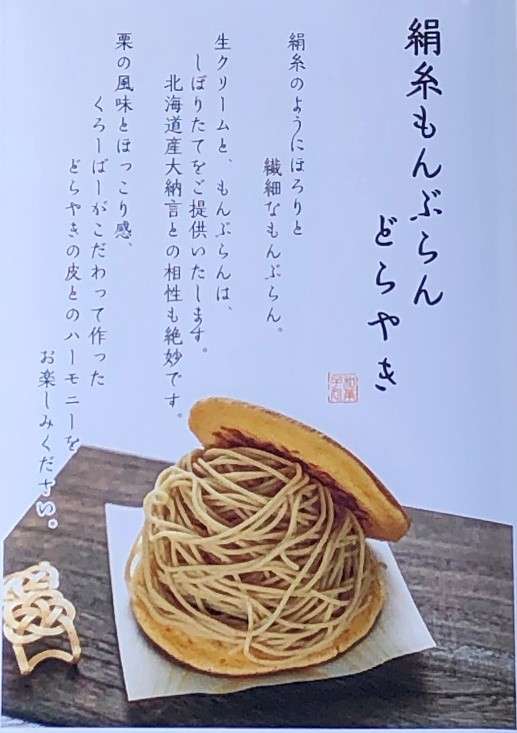 絹糸もんぶらん
どらやき
絹糸のようにほろりと
繊細なもんぶらん。
生クリームと、もんぶらんは、
しぼりたてをご提供いたします。
北海道産大納言との相性も絶妙です。
栗の風味とほっこり感、
くろーばーがこだわって作った
どらやきの皮とのハーモニーを
お楽しみください。